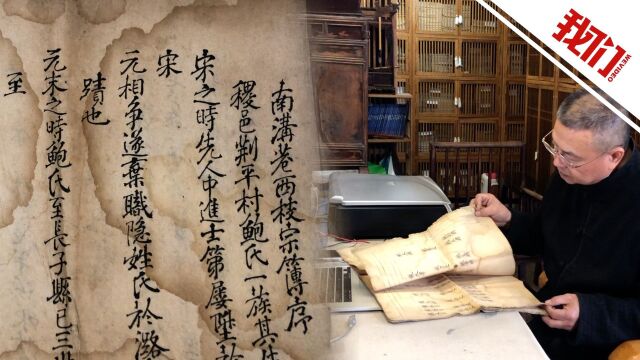 南溝巷西枝宗簿序
稷邑荆平村鮑氏一族其
宋之時先人中進士第屡陞
宋
元相争遂棄職隐姓氏於潞
蹟也
元末之時鮑氏至長子縣已三
至
我们
WEVIDEO